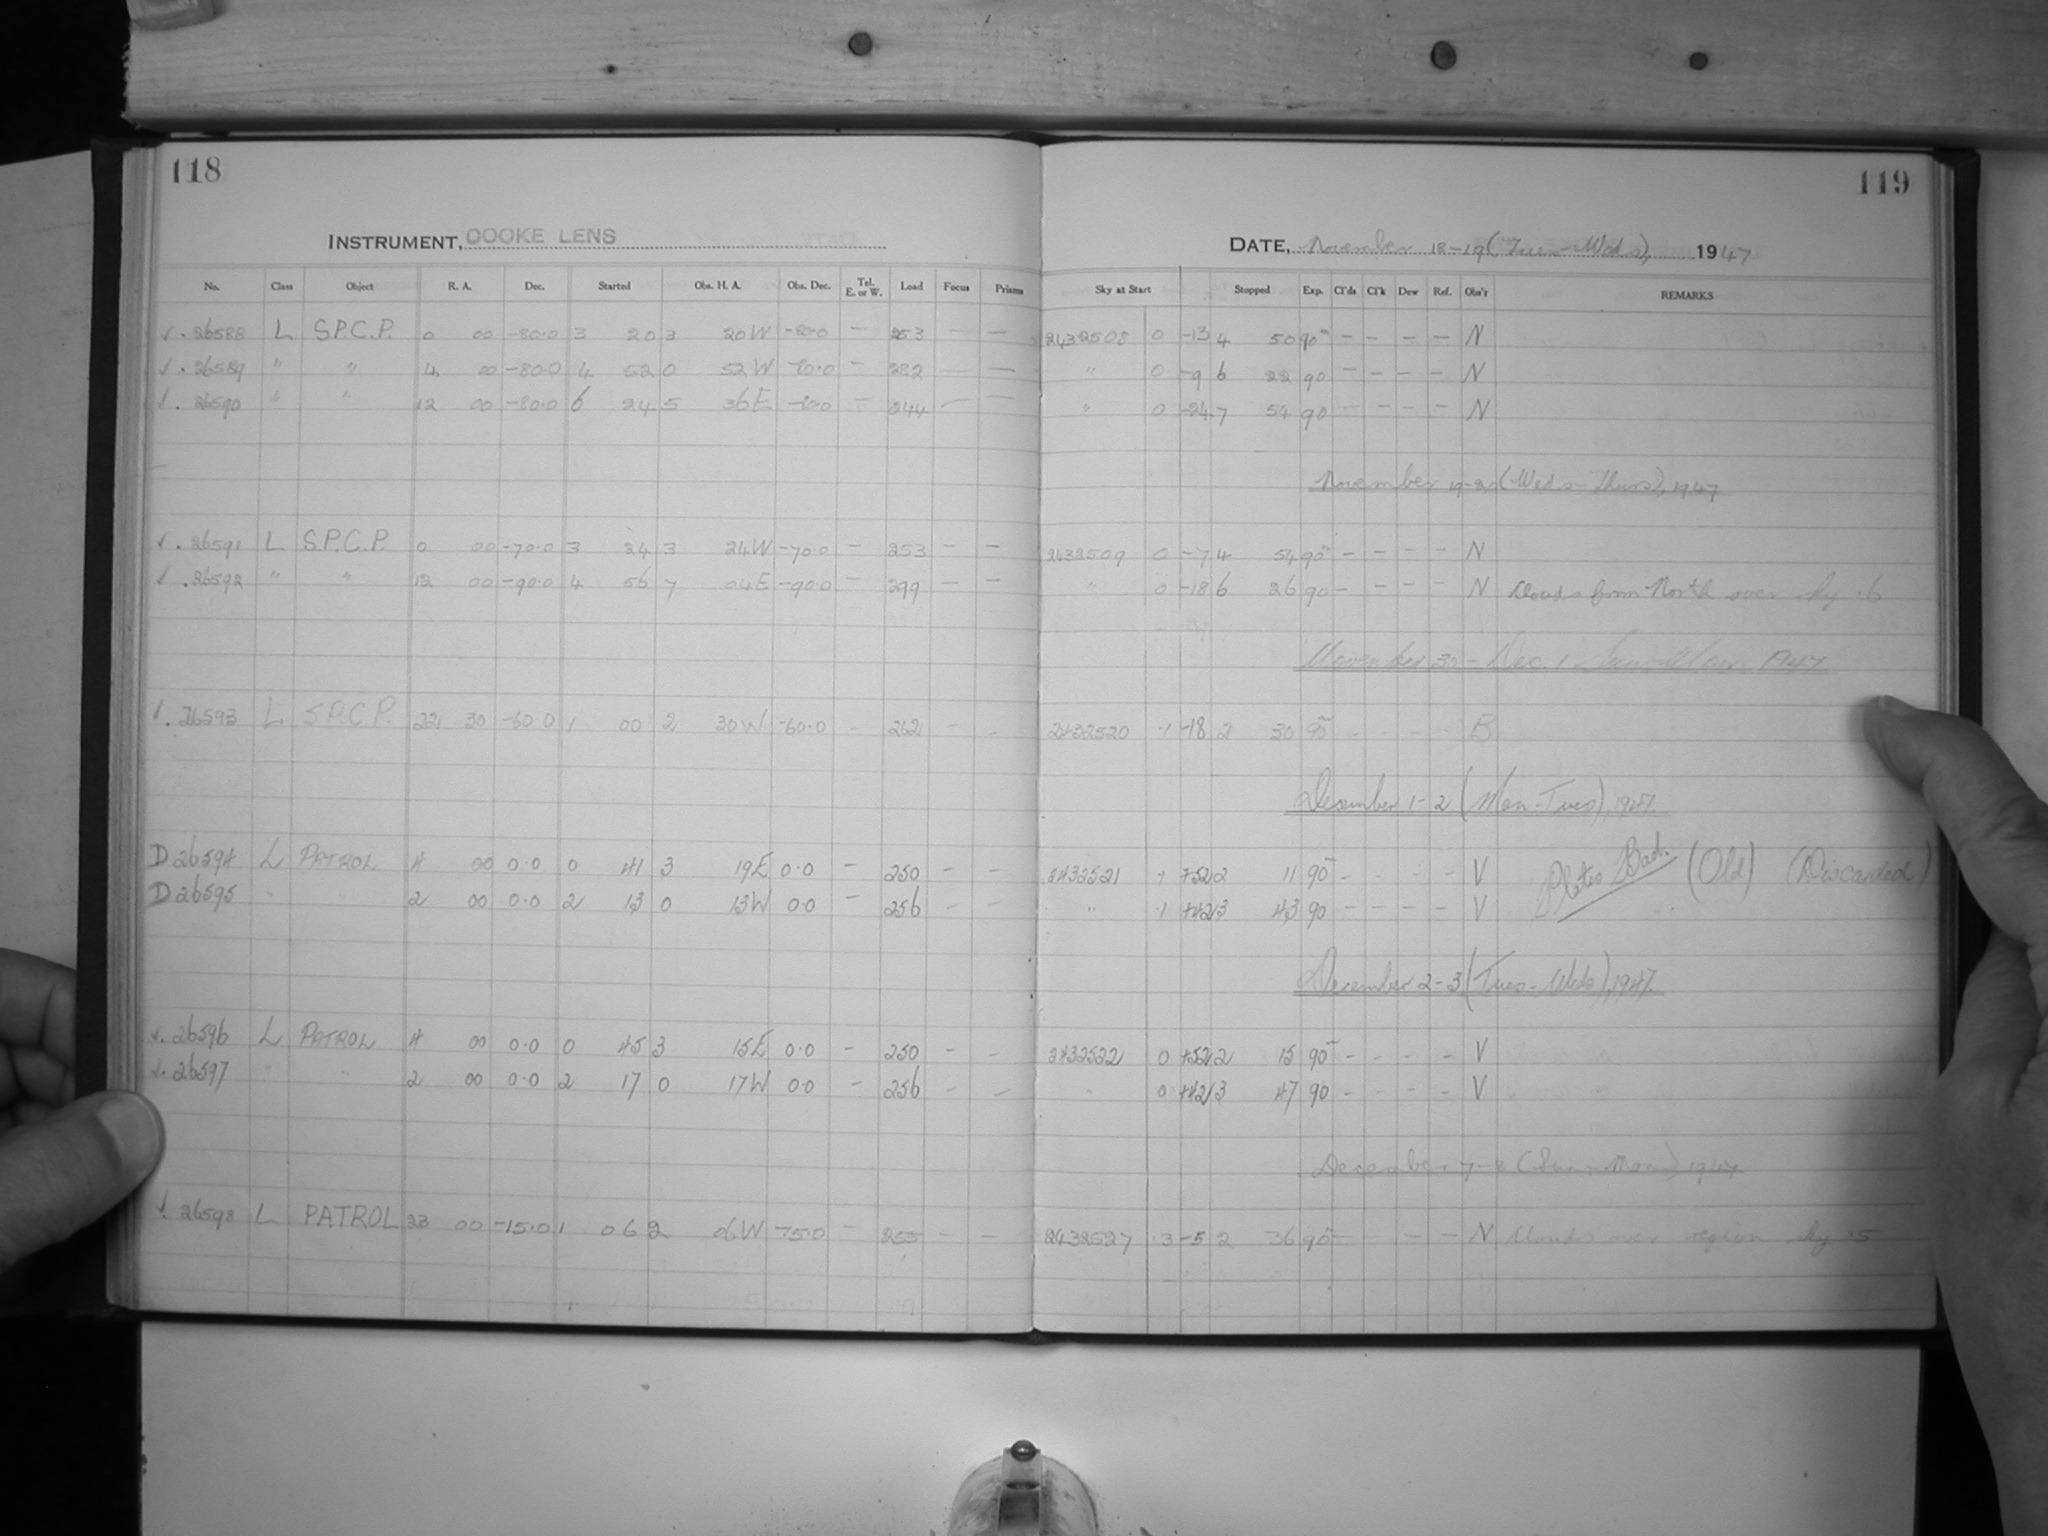 118
119
INSTRUMENT, COOKE LENS
DATE, November 18-19 (Tues-Weds), 1947
No. Class Object R. A. Dec. Started Obs. H. A. Obs. Dec. Tel. E. or W. Load Focus Prisms Sky at Start Stopped Exp. Cl'ds Cl'k Dew Ref. Obs'r REMARKS
√. 26588 L S.P.C.P. 0 00 -80.0 3 20 3 20W -80.0 – 253 – – 2432508 0 -13 4 50 90m – – – – N
√. 26589 " " 4 00 -80.0 4 52 0 52W -80.0 – 282 – – " 0 -9 6 22 90 – – – – N
√. 26590 " " 12 00 -80.0 6 24 5 36E -80.0 – 244 – – " 0 -24 7 54 90 – – – – N
November 19-20 (Weds-Thurs), 1947
√. 26591 L S.P.C.P. 0 00 -70.0 3 24 3 24W -70.0 – 253 – – 2432509 0 -7 4 54 90m – – – – N
√. 26592 " " 12 00 -90.0 4 56 7 04E -90.0 – 299 – – " 0 -18 6 26 90 – – – – N Clouds from North over sky .6
November 30 - Dec. 1 Sun-Mon 1947
√. 26593 L S.P.C.P. 22 30 -60.0 1 00 2 30W -60.0 – 262 – – 2432520 .1 -18 2 30 90m – – – – B
December 1-2 (Mon-Tues), 1947.
D 26594 L PATROL 4 00 0.0 0 41 3 19E 0.0 – 250 – – 2432521 .1 +52 2 11 90m – – – – V Plates Bad. (Old) (Discarded)
D 26595 " " 2 00 0.0 2 13 0 13W 0.0 – 256 – – " .1 +42 3 43 90 – – – – V
December 2-3 (Tues-Weds), 1947.
√. 26596 L PATROL 4 00 0.0 0 45 3 15E 0.0 – 250 – – 2432522 0 +52 2 15 90m – – – – V
√. 26597 " " 2 00 0.0 2 17 0 17W 0.0 – 256 – – " 0 +42 3 47 90 – – – – V
December 7-8 (Sun-Mon), 1947
√. 26598 L PATROL 23 00 -15.0 1 06 2 06W -15.0 – 255 – – 2432527 .3 -5 2 36 90m – – – – N Clouds over region sky .5